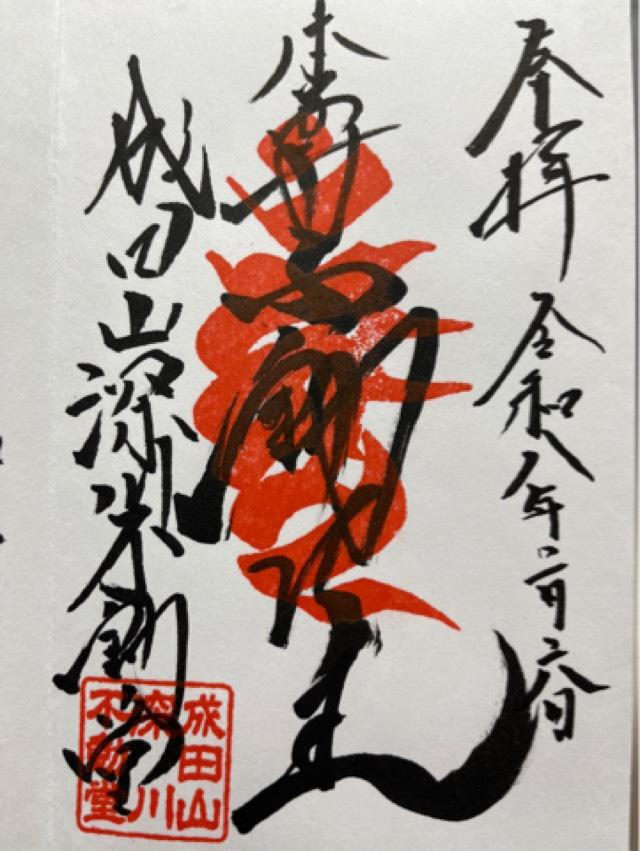 奉拝 令和八年二月
本尊不動明王
成田山深川不動堂
成田山
深川
不動堂